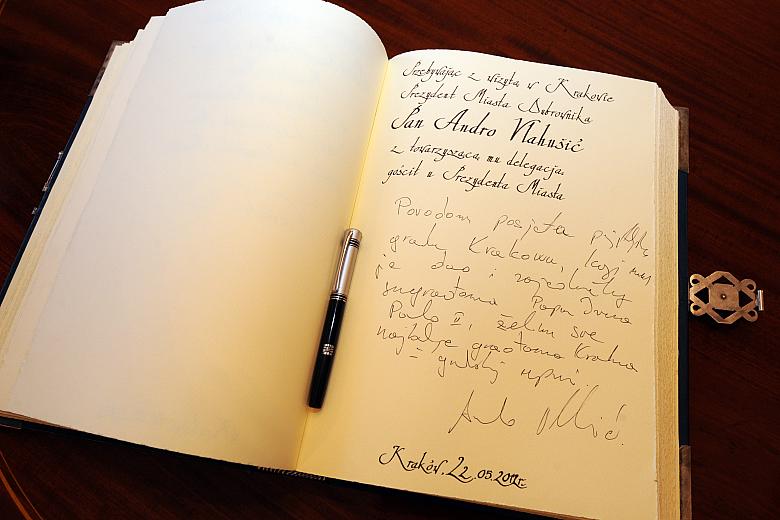 Przebywając z wizytą w Krakowie
Prezydent Miasta Dubrownika
Pan Andro Vlahušić
z towarzyszącą mu delegacją,
gościł u Prezydenta Miasta
Povodom posjeta
gradu Krakovu, koji nam
je dao i zajedničkog
sugrađanina Papu Ivana
Pavla II, želim sve
najbolje građanima Krakova
i gradskoj upravi.
Kraków, 22.05.2012r.